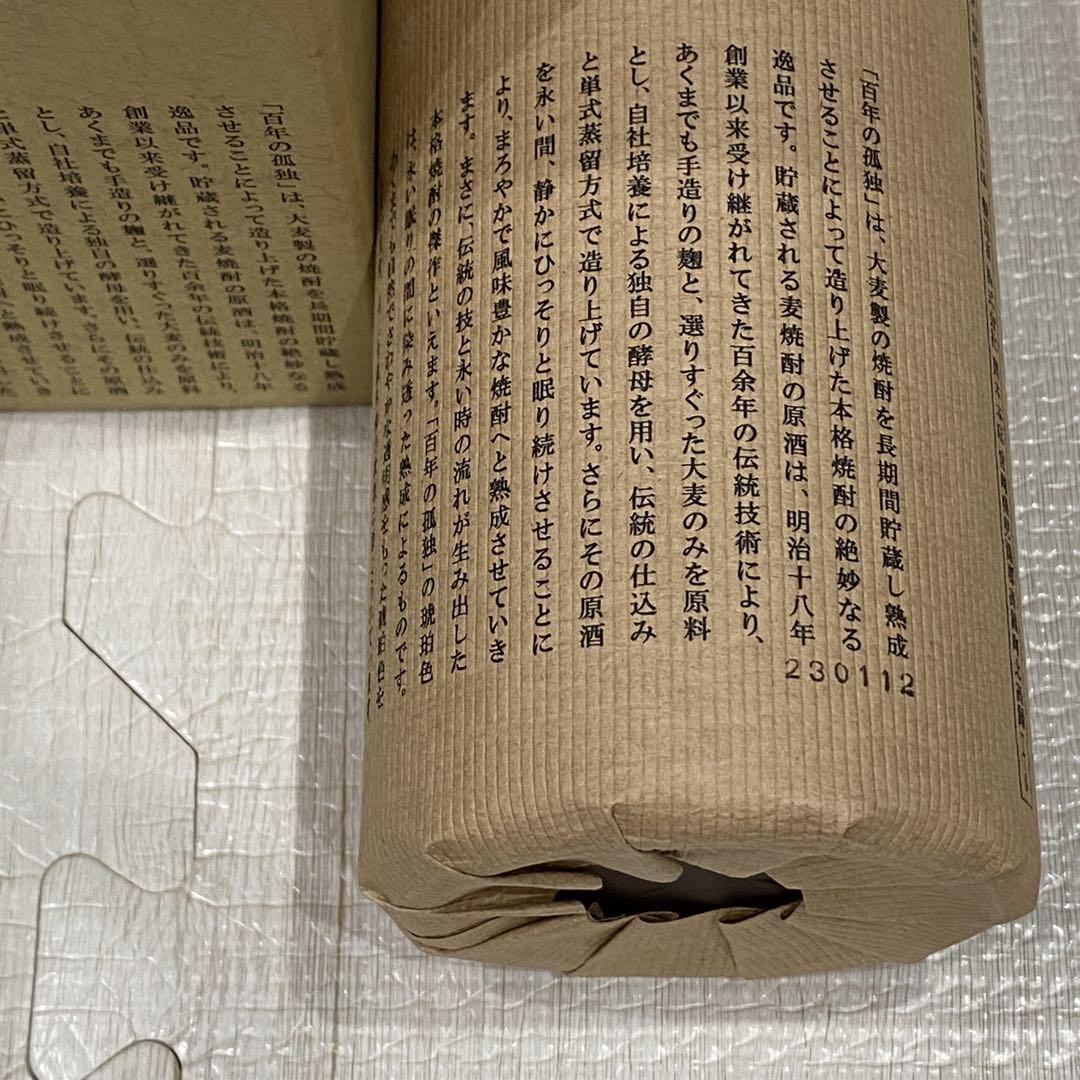 「百年の孤独」は、大麦製の焼酎を長期間貯蔵し熟成
させることによって造り上げた本格焼酎の絶妙なる
逸品です。貯蔵される麦焼酎の原酒は、明治十八年
創業以来受け継がれてきた百余年の伝統技術により、
あくまでも手造りの麹と、選りすぐった大麦のみを原料
とし、自社培養による独自の酵母を用い、伝統の仕込み
と単式蒸留方式で造り上げています。さらにその原酒
を永い間、静かにひっそりと眠り続けさせることに
より、まろやかで風味豊かな焼酎へと熟成させていき
ます。まさに、伝統の技と永い時の流れが生み出した
本格焼酎の傑作といえます。「百年の孤独」の琥珀色
は、永い眠りの間に染み透った熟成によるものです。
230112
「百年の孤独」は、大麦製の焼酎を長期間貯蔵し熟成
させることによって造り上げた本格焼酎の絶妙なる
逸品です。貯蔵される麦焼酎の原酒は、明治十八年
創業以来受け継がれてきた百余年の伝統技術により、
あくまでも手造りの麹と、選りすぐった大麦のみを原料
とし、自社培養による独自の酵母を用い、伝統の仕込み
と単式蒸留方式で造り上げています。さらにその原酒